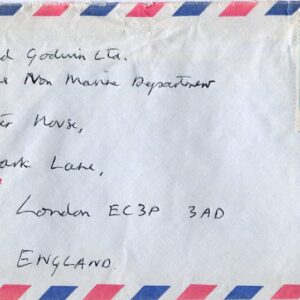 d Godwin Ltd.
Non Marine Department
ter House,
ark Lane,
London EC3P 3AD
ENGLAND.